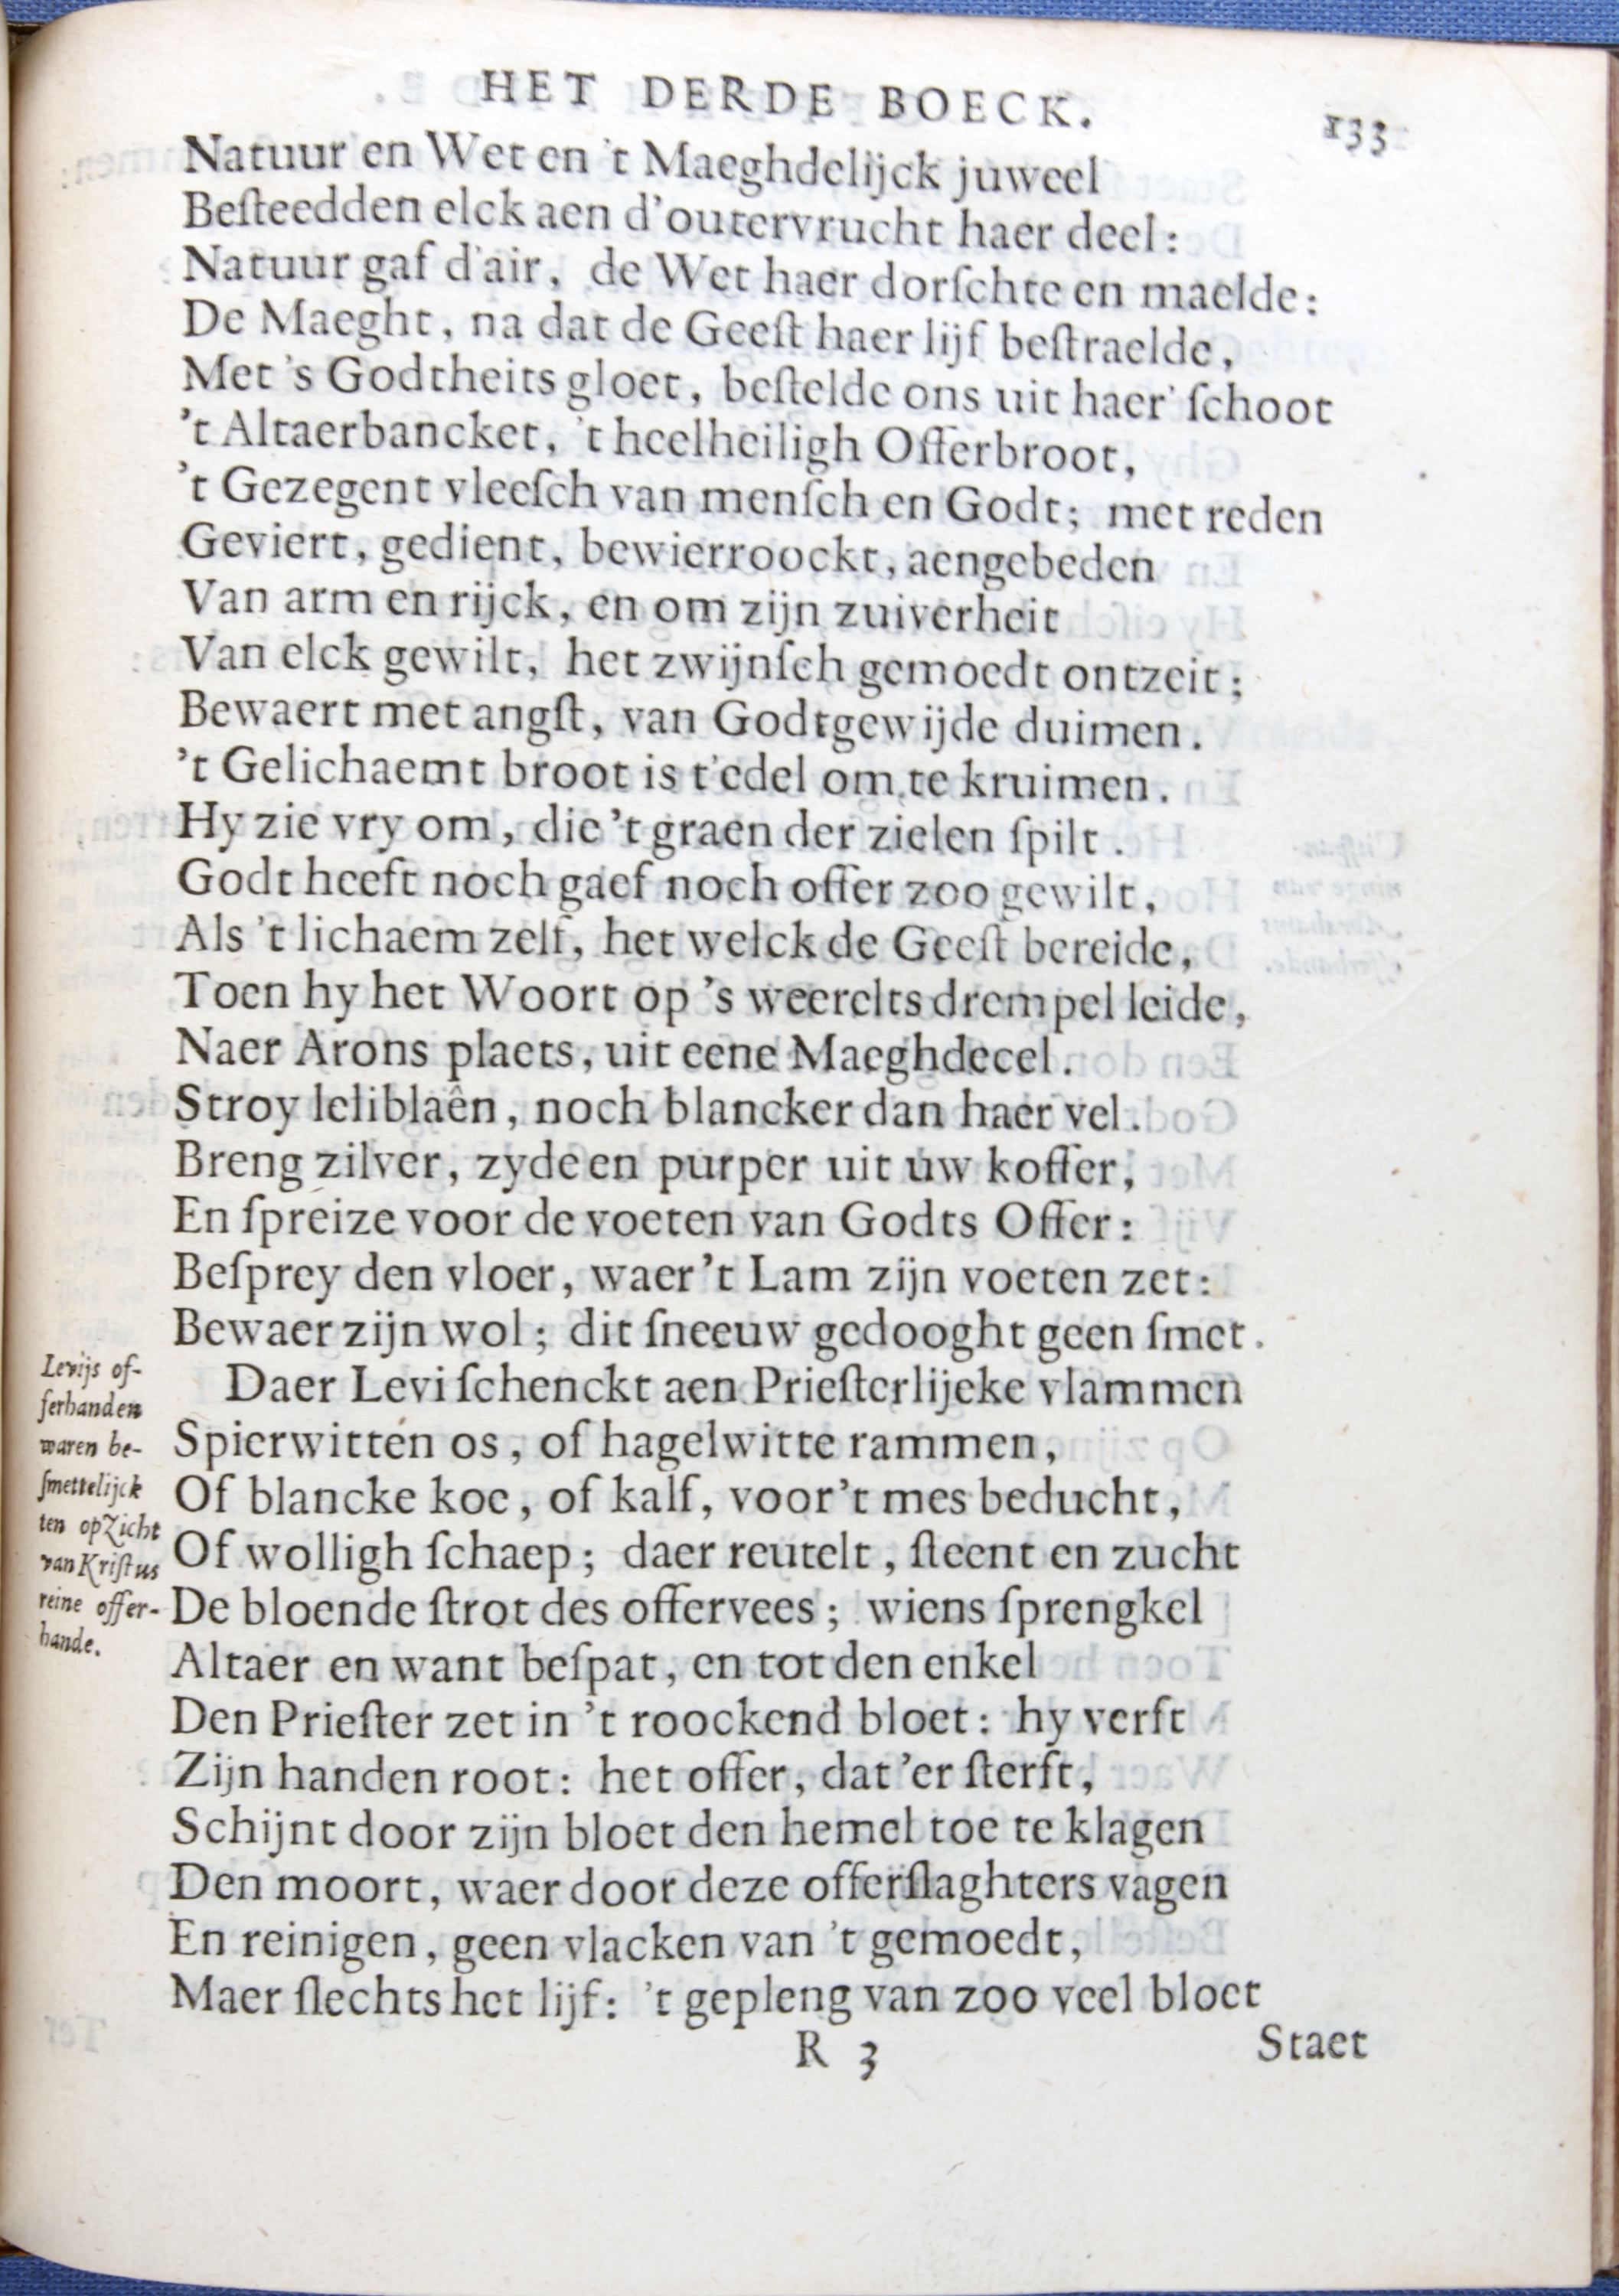 HET DERDE BOECK.
133
Natuur en Wet en 't Maeghdelijck juweel
Beſteedden elck aen d'outervrucht haer deel:
Natuur gaf d'air, de Wet haer dorſchte en maelde:
De Maeght, na dat de Geeſt haer lijf beſtraelde,
Met 's Godtheits gloet, beſtelde ons uit haer' ſchoot
't Altaerbancket, 't heelheiligh Offerbroot,
't Gezegent vleeſch van menſch en Godt; met reden
Geviert, gedient, bewierroockt, aengebeden
Van arm en rijck, en om zijn zuiverheit
Van elck gewilt, het zwijnſch gemoedt ontzeit;
Bewaert met angſt, van Godtgewijde duimen.
't Gelichaemt broot is t'edel om te kruimen.
Hy zie vry om, die 't graen der zielen ſpilt.
Godt heeft noch gaef noch offer zoo gewilt,
Als 't lichaem zelf, het welck de Geeſt bereide,
Toen hy het Woort op 's weerelts drempel leide,
Naer Arons plaets, uit eene Maeghdecel.
Stroy leliblaên, noch blancker dan haer vel.
Breng zilver, zyde en purper uit uw koffer,
En ſpreize voor de voeten van Godts Offer:
Beſprey den vloer, waer 't Lam zijn voeten zet:
Bewaer zijn wol; dit ſneeuw gedooght geen ſmet.
Levijs of-
ferhanden
waren be-
ſmettelijck
ten opzicht
van Kriſtus
reine offer-
hande.
Daer Levi ſchenckt aen Prieſterlijcke vlammen
Spierwitten os, of hagelwitte rammen,
Of blancke koe, of kalf, voor 't mes beducht,
Of wolligh ſchaep; daer reutelt, ſteent en zucht
De bloende ſtrot des offervees; wiens ſprengkel
Altaer en want beſpat, en tot den enkel
Den Prieſter zet in 't roockend bloet: hy verft
Zijn handen root: het offer, dat 'er ſterft,
Schijnt door zijn bloet den hemel toe te klagen
Den moort, waer door deze offerſlaghters vagen
En reinigen, geen vlacken van 't gemoedt,
Maer ſlechts het lijf: 't gepleng van zoo veel bloet
R 3
Staet